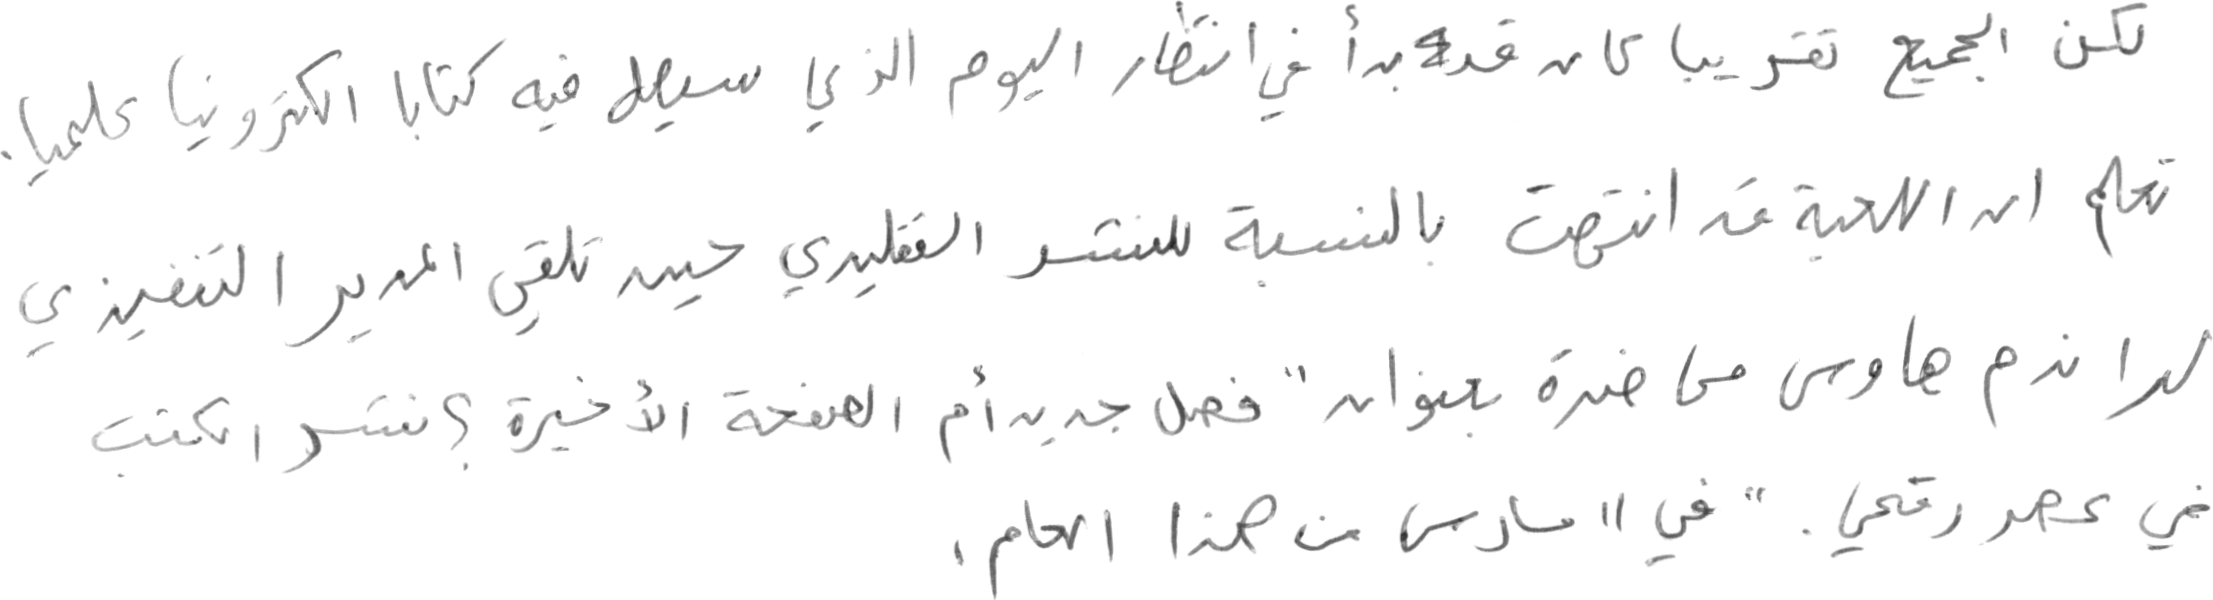 لكن الجميع تقريبا كان قد بدأ في انتظار اليوم الذي سيصل فيه كتابا الكترونيا علميا.
تعلم ان اللعبة قد انتهت بالنسبة للنشر التقليدي حين تلقي المدير التنفيذي
لراندم هاوس محاضرة بعنوان "فصل جديد أم الصفحة الأخيرة؟ نشر الكتب
في عصر رقمي." في 11 مارس من هذا العام،